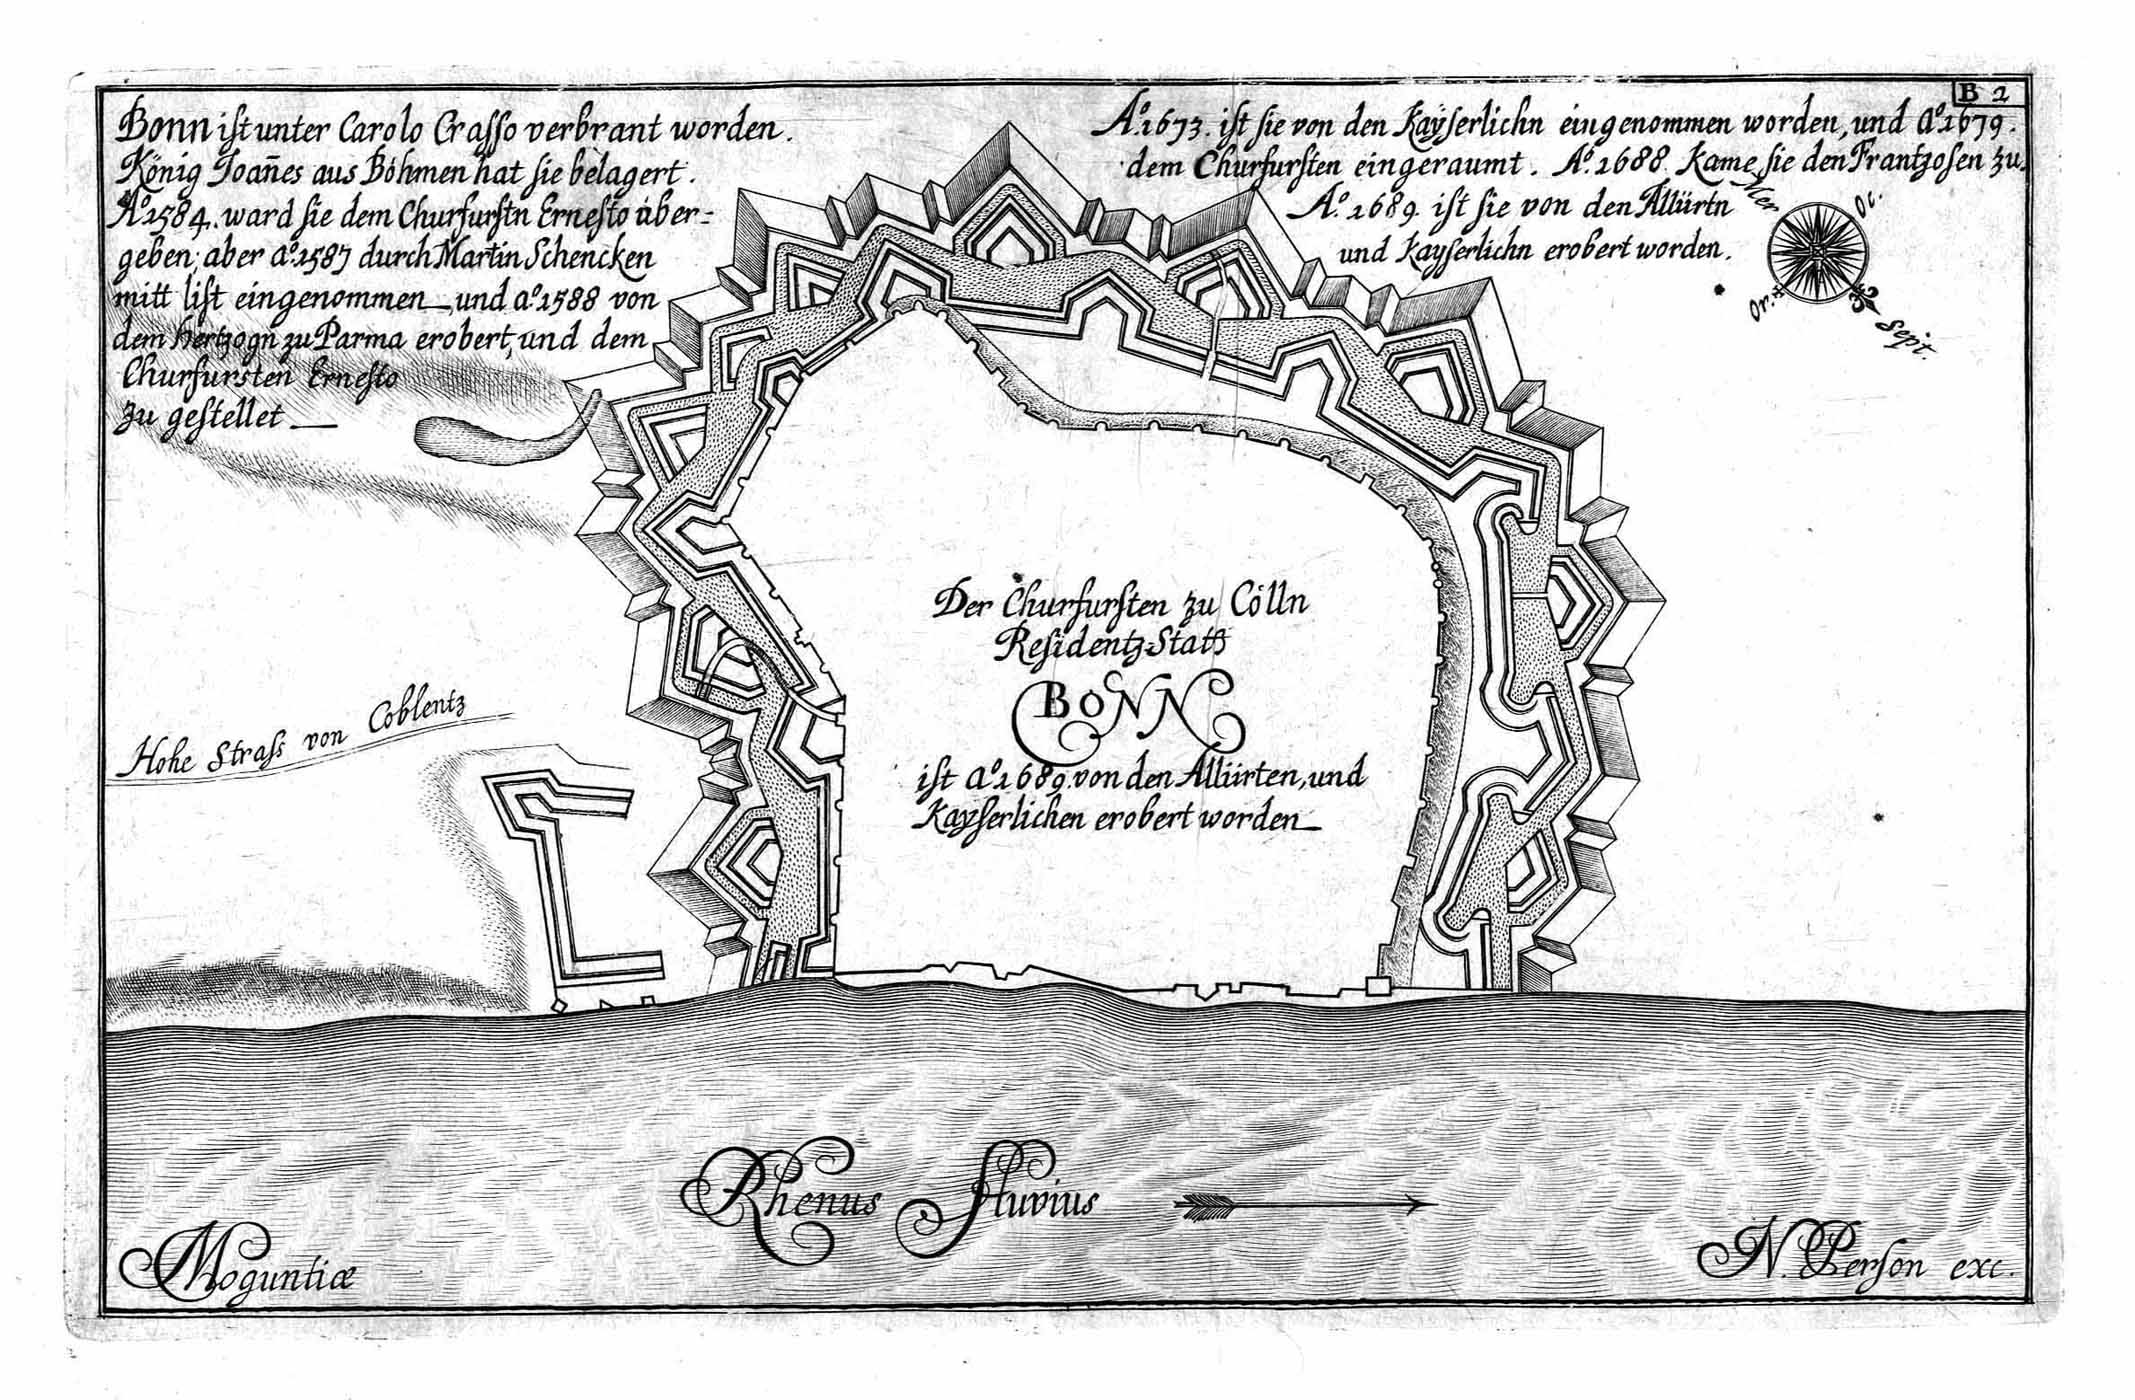 Bonn ist unter Carolo Crasso verbrant worden.
König Joan̄es aus Böhmen hat sie belagert.
Aº. 1584. ward sie dem Churfurstn Ernesto über=
geben; aber aº. 1587 durch Martin Schencken
mitt list eingenommen, und aº. 1588 von
dem Hertzogn zu Parma erobert, und dem
Churfursten Ernesto
zu gestellet
B 2
Aº. 1673. ist sie von den Kayserlichn eingenommen worden, und aº. 1679.
dem Churfursten eingeraumt. Aº. 1688. Kame sie den Frantzosen zu.
Aº. 1689. ist sie von den Alliirtn
und Kayserlichn erobert worden.
Mer
Oc.
Or.
Sept.
Der Churfursten zu Cölln
Residentz-Statt
BONN
ist aº. 1689. von den Alliirten, und
Kayserlichen erobert worden
Hohe Strass von Coblentz
Rhenus Fluvius
Moguntiæ
N. Person exc.